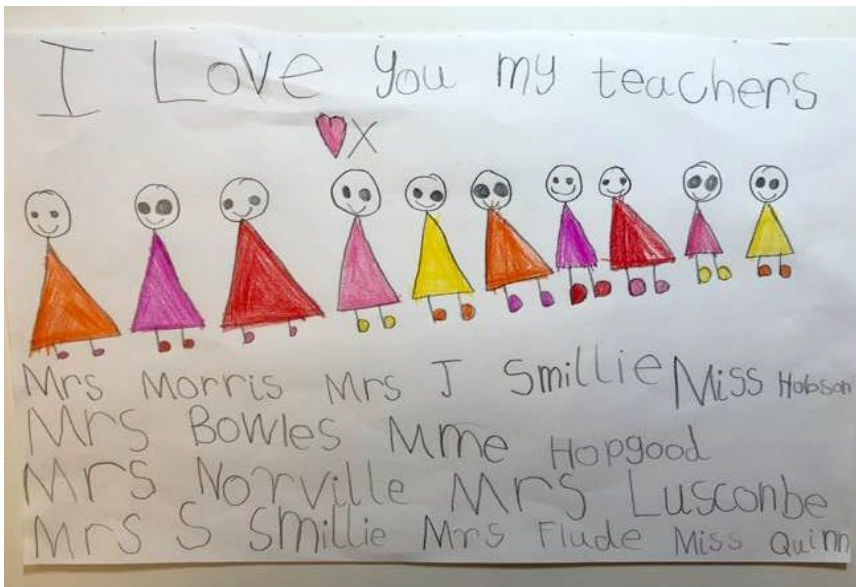 I Love You my teachers
X
Mrs Morris Mrs J Smillie Miss Hobson
Mrs Bowles Mme Hopgood
Mrs Norville Mrs Lusconbe
Mrs S Smillie Mrs Flude Miss Quinn